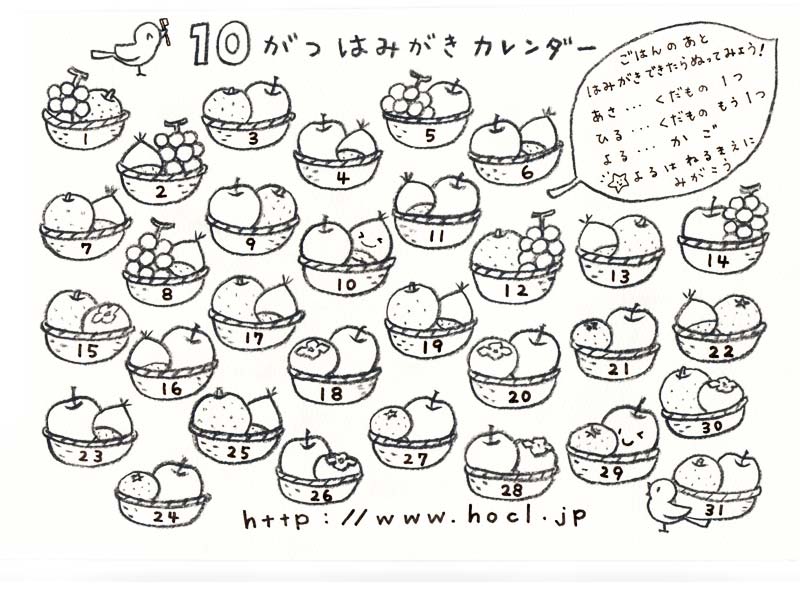 10 がつ はみがき カレンダー
ごはんの あと
はみがきできたらぬってみよう!
あさ … くだもの 1つ
ひる … くだもの もう1つ
よる … か ご
よるは ねるまえに
みがこう
1
2
3
4
5
6
7
8
9
10
11
12
13
14
15
16
17
18
19
20
21
22
23
24
25
26
27
28
29
30
31
http://www.hocl.jp